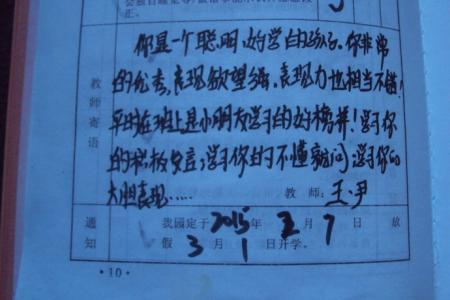 正。
你是一个聪明、好学的孩子。你非常
的优秀，表现欲望强，表现力也相当不错！
平时在班上是小朋友学习的好榜样！学习你
的积极发言；学习你的不懂就问；学习你的
大胆表现……
教师：王·尹
教师寄语
通知
我园定于2015年2月7日放
假 3月1日开学。
·10·